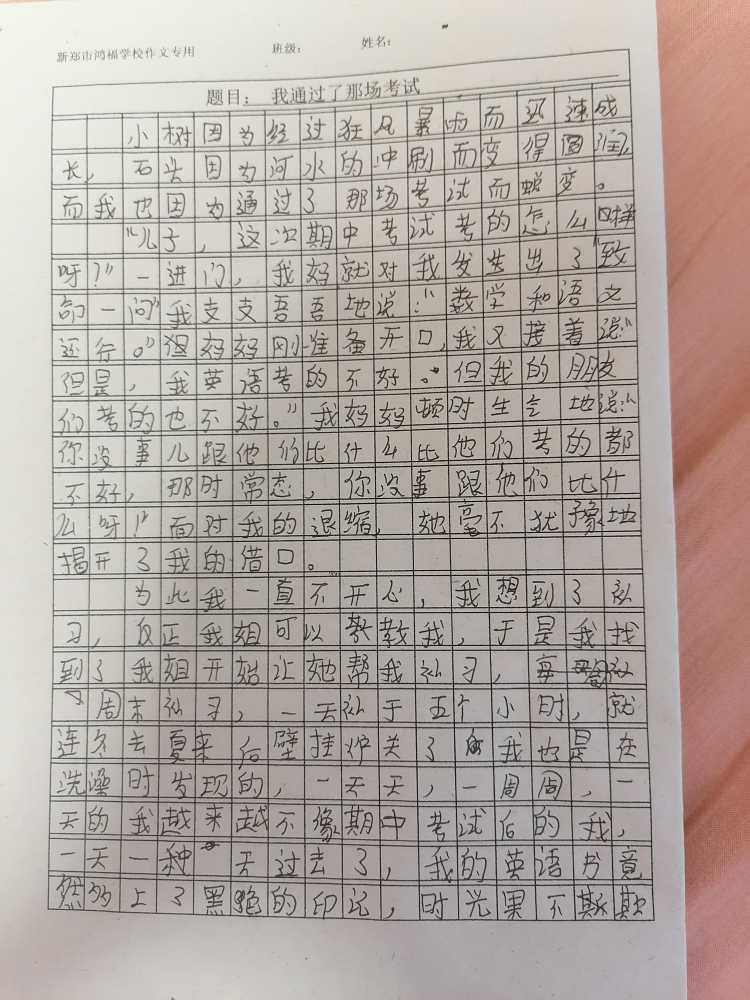 新郑市鸿福学校作文专用 班级: 姓名:
题目： 我通过了那场考试
小树因为经过狂风暴雨而迅速成
长，石头因为河水的冲刷而变得圆润，
而我也因为通过了那场考试而蜕变。
“儿子，这次期中考试考的怎么样
呀？”一进门，我妈就对我发生出了“致
命一问”我支支吾吾地说：“数学和语文
还行。”但妈妈刚准备开口，我又接着说：“
但是，我英语考的不好。但我的朋友
们考的也不好。”我妈妈顿时生气地说：“
你没事儿跟他们比什么比他们考的都
不好，那时常态，你没事跟他们比什
么呀！”面对我的退缩，她毫不犹豫地
揭开了我的借口。
为此我一直不开心，我想到了补
习，反正我姐可以教教我，于是我找
到了我姐开始让她帮我补习，每
周末补习，一天补于五个小时，就
连冬去夏来后壁挂炉关了我也是在
洗澡时发现的，一天天，一周周，一
天的我越来越不像期中考试后的我，
一天一种天过去了，我的英语书竟
然多上了黑艳的印记，时光果不斯欺